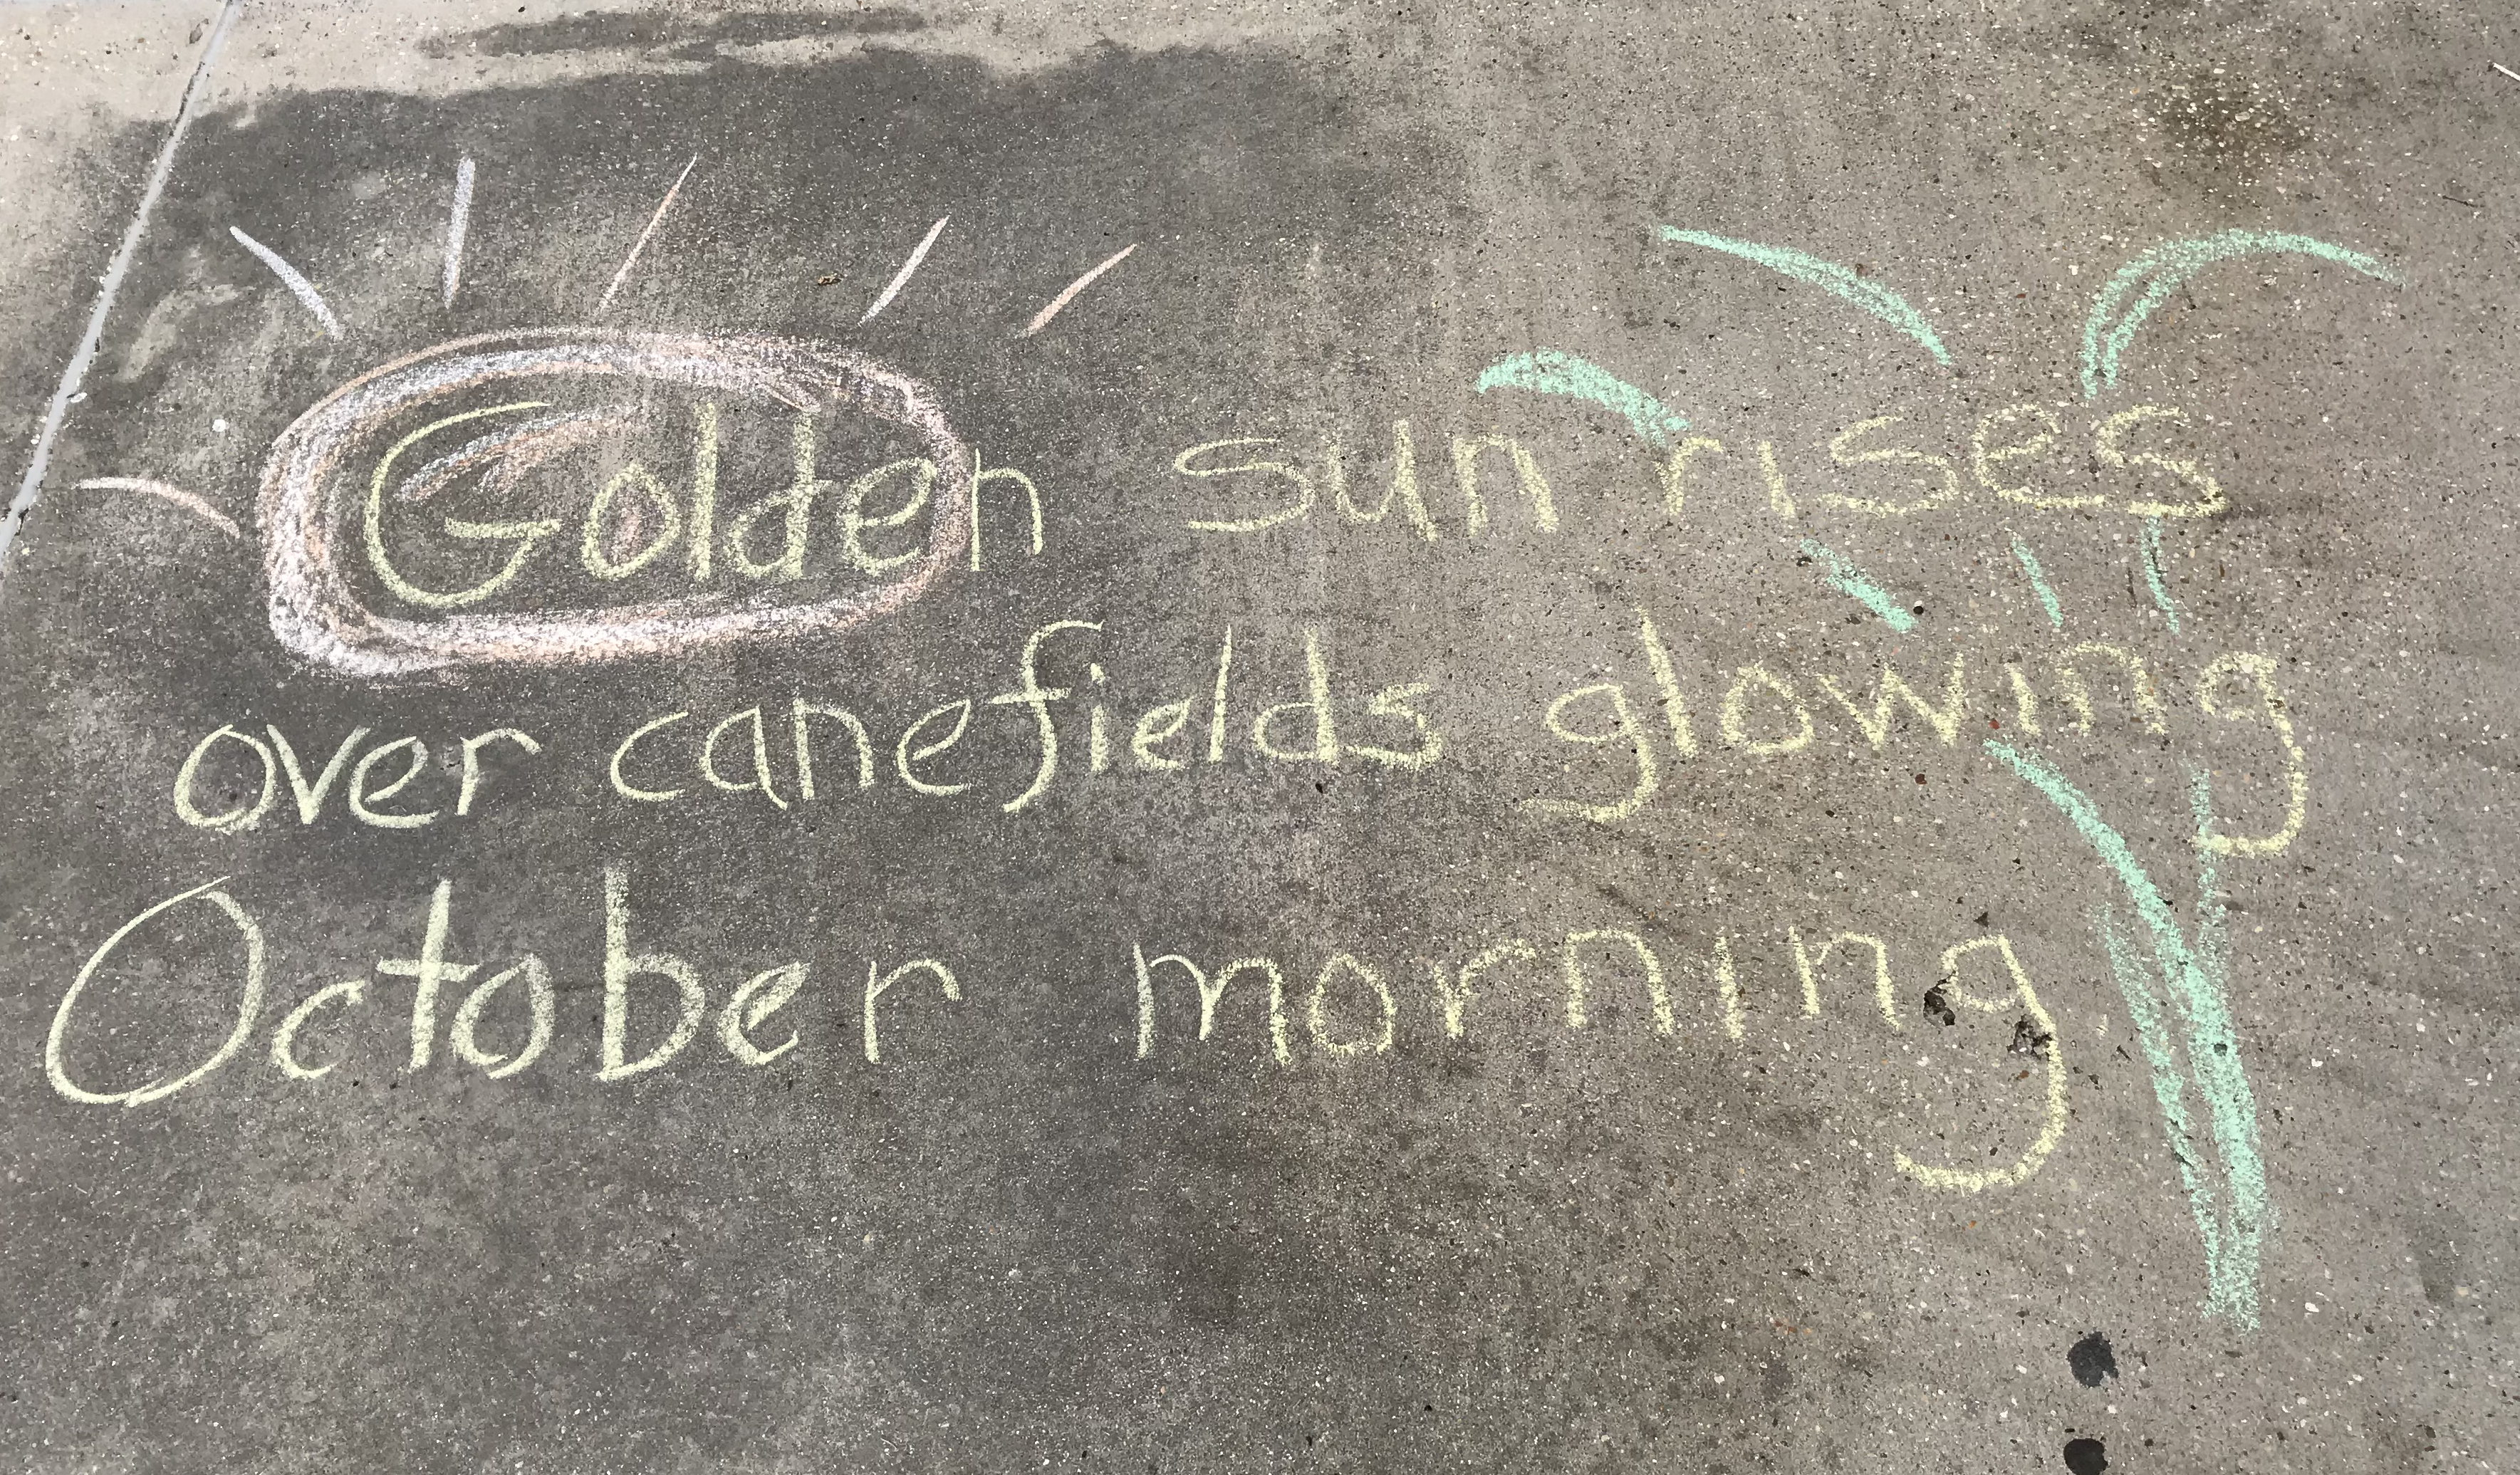 Golden sun rises
over canefields glowing
October morning